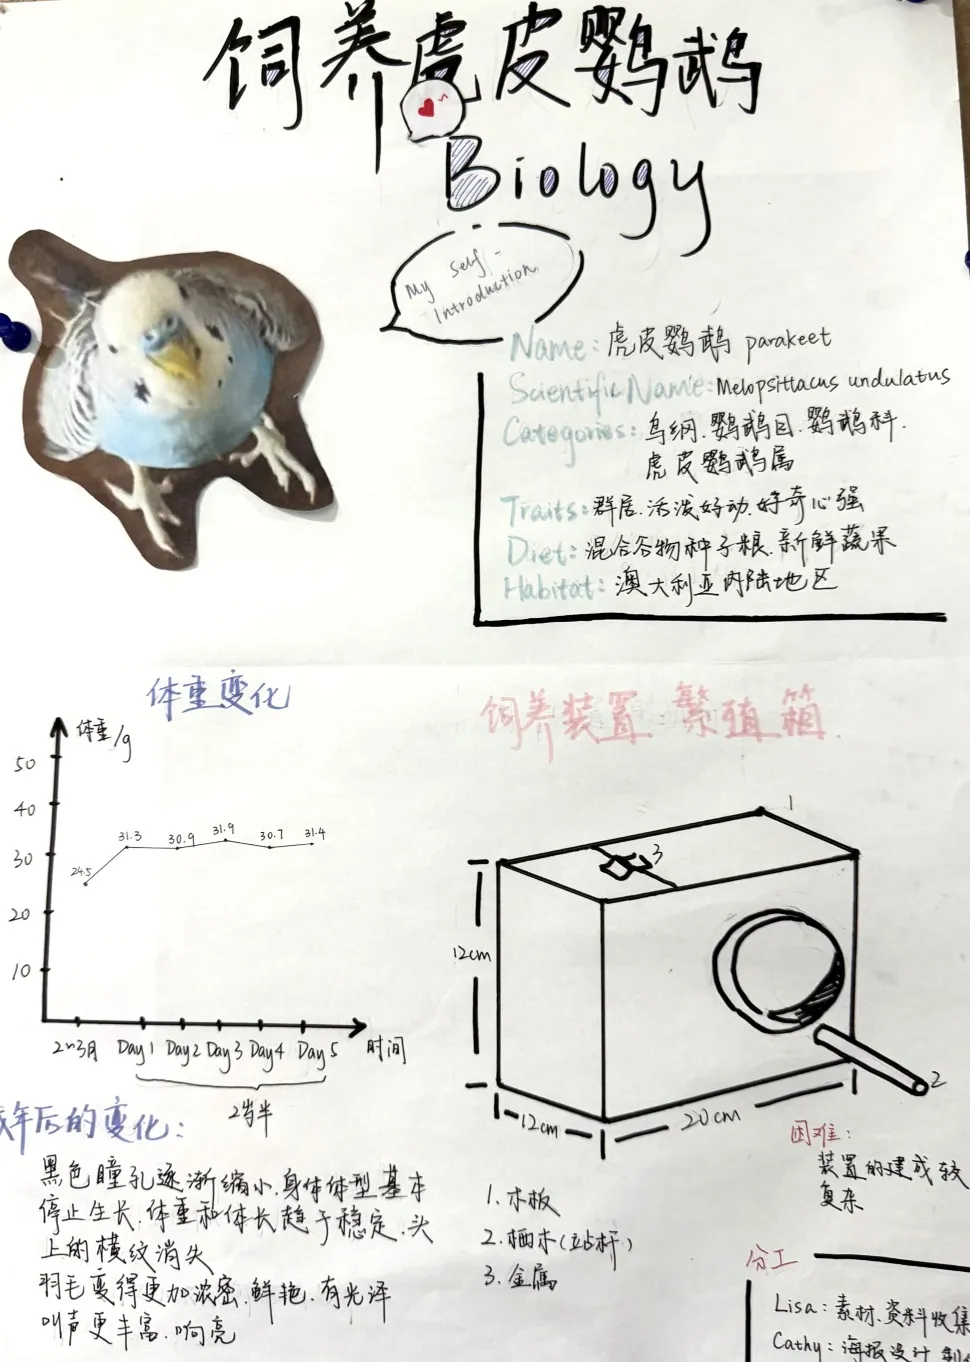 饲养虎皮鹦鹉
Biology
My self-
Introduction
Name: 虎皮鹦鹉 parakeet
Scientific Name: Melopsittacus undulatus
Categories: 鸟纲、鹦鹉目、鹦鹉科、
虎皮鹦鹉属
Traits: 群居、活泼好动、好奇心强
Diet: 混合谷物种子粮、新鲜蔬果
Habitat: 澳大利亚内陆地区
体重变化
体重/g
50
40
30
20
10
24.5
31.3
30.9
31.9
30.7
31.4
2~3月 Day1 Day2 Day3 Day4 Day5 时间
2岁半
饲养装置:繁殖箱
1
3
12cm
2
12cm
20cm
1. 木板
2. 栖木(站杆)
3. 金属
困难:
装置的建成较
复杂
成年后的变化:
黑色瞳孔逐渐缩小、身体体型基本
停止生长、体重和体长趋于稳定、头
上的横纹消失
羽毛变得更加浓密、鲜艳、有光泽
叫声更丰富、响亮
分工
Lisa: 素材、资料收集
Cathy: 海报设计